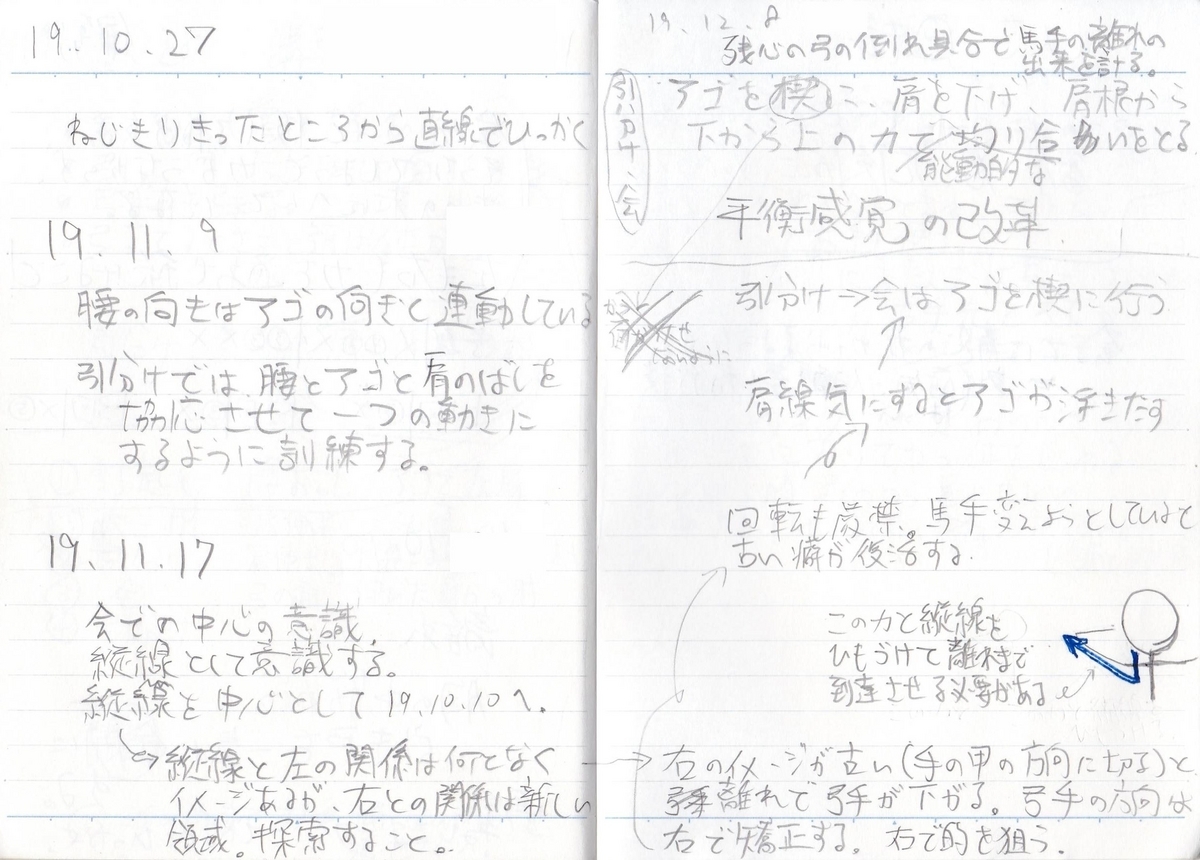 19.10.27
ねじきりきったところから直線でひっかく
19.11.9
腰の向きはアゴの向きと連動している
引分けでは、腰とアゴと肩のばしを
協応させて一つの動きに
するように訓練する。
19.11.17
会での中心の意識、
縦線として意識する。
縦線を中心として19.10.10へ。
縦線と左の関係は何となく
イメージあるが、右との関係は新しい
領域。探索すること。
19.12.8
残心の弓の倒れ具合で馬手の離れの
出来を計る。
引分け、会
アゴを楔に、肩を下げ、肩根から
下から上の力で均り合いをとる
能動的な
平衡感覚の改革
引分け→会はアゴを楔に行う
肩線気にするとアゴが浮きだす
回転も厳禁。馬手変えようとしていると
古い癖が復活する。
この力と縦線を
ひもづけて離れまで
到達させる必要がある
右のイメージが古い(手の甲の方向に切る)と
離れで弓手が下がる。弓手の方向は
右で矯正する。右で的を狙う。